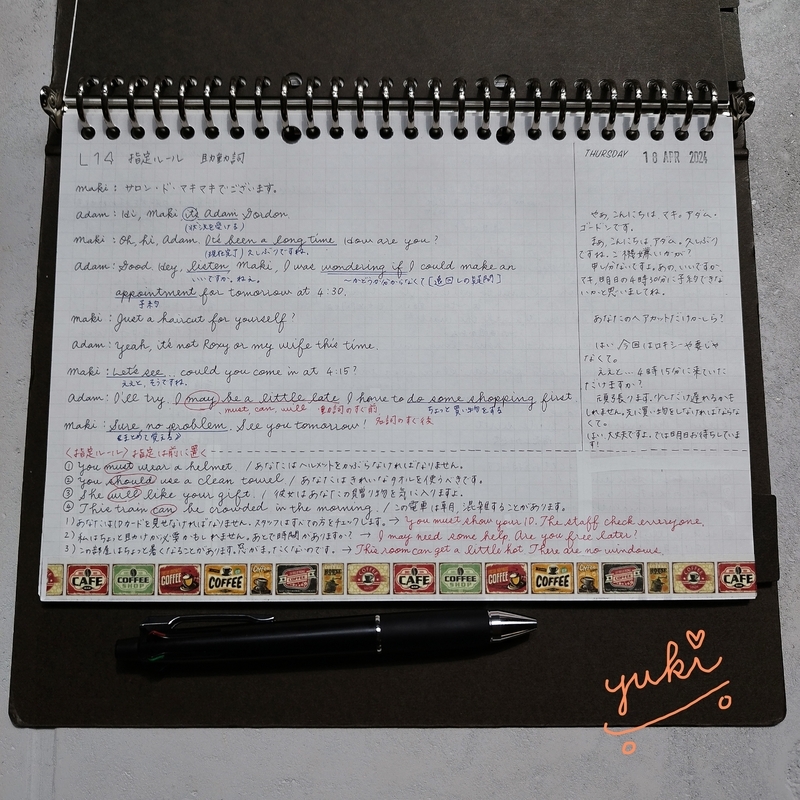 L14 指定ルール 助動詞
THURSDAY 18 APR 2024
maki: サロン・ド・マキマキでございます。
Adam: Hi, Maki it's Adam Gordon.
(状況を受ける)
Maki: Oh, hi, Adam It's been a long time How are you?
(現在完了) 久しぶりですね。
Adam: Good. Hey, listen, Maki, I was wondering if I could make an
いいですか、ねえ。 〜かどうか分からなくて[遠回しの疑問]
appointment for tomorrow at 4:30.
予約
Maki: Just a haircut for yourself?
Adam: Yeah, it's not Roxy or my wife this time.
Maki: Let's see... could you come in at 4:15?
ええと、そうですね。
Adam: I'll try. I may be a little late I have to do some shopping first.
must, can, will 動詞のすぐ前 ちょっと買い物をする
Maki: Sure no problem. See you tomorrow! 名詞のすぐ後
《まとめて覚える》
やあ、こんにちは マキ。アダム・
ゴードンです。
まあ、こんにちは アダム。久しぶり
ですね。ご機嫌いかが?
申し分ないですよ。あの、いいですか、
マキ、明日の4時30分に予約できな
いかと思いましてね。
あなたのヘアカットだけかしら?
はい、今回はロキシーや妻じゃ
なくて。
ええと... 4時15分に来ていた
だけますか?
頑張ります。少しだけ遅れるかも
しれません。先に買い物をしなければならな
くて。
はい、大丈夫ですよ。では明日お待ちしていま
す!
<指定ルール> 指定は前に置く
① You must wear a helmet / あなたはヘルメットをかぶらなければなりません。
② You should use a clean towel / あなたはきれいなタオルを使うべきです。
③ She will like your gift. / 彼女はあなたの贈り物を気に入りますよ。
④ This train can be crowded in the morning. / この電車は毎朝、混雑することがあります。
1) あなたはIDカードを見せなければなりません。スタッフはすべての方をチェックします。→ You must show your ID. The staff check everyone.
2) 私はちょっと助けが必要かもしれません。あとで時間がありますか? → I may need some help Are you free later?
3) この部屋はちょっと暑くなることがあります。窓がまったくないのです。→ This room can get a little hot There are no windows.
CAFE COFFEE SHOP COFFEE COFFEE Coffee COFFEE CAFE COFFEE SHOP COFFEE COFFEE Coffee COFFEE CAFE
yuki